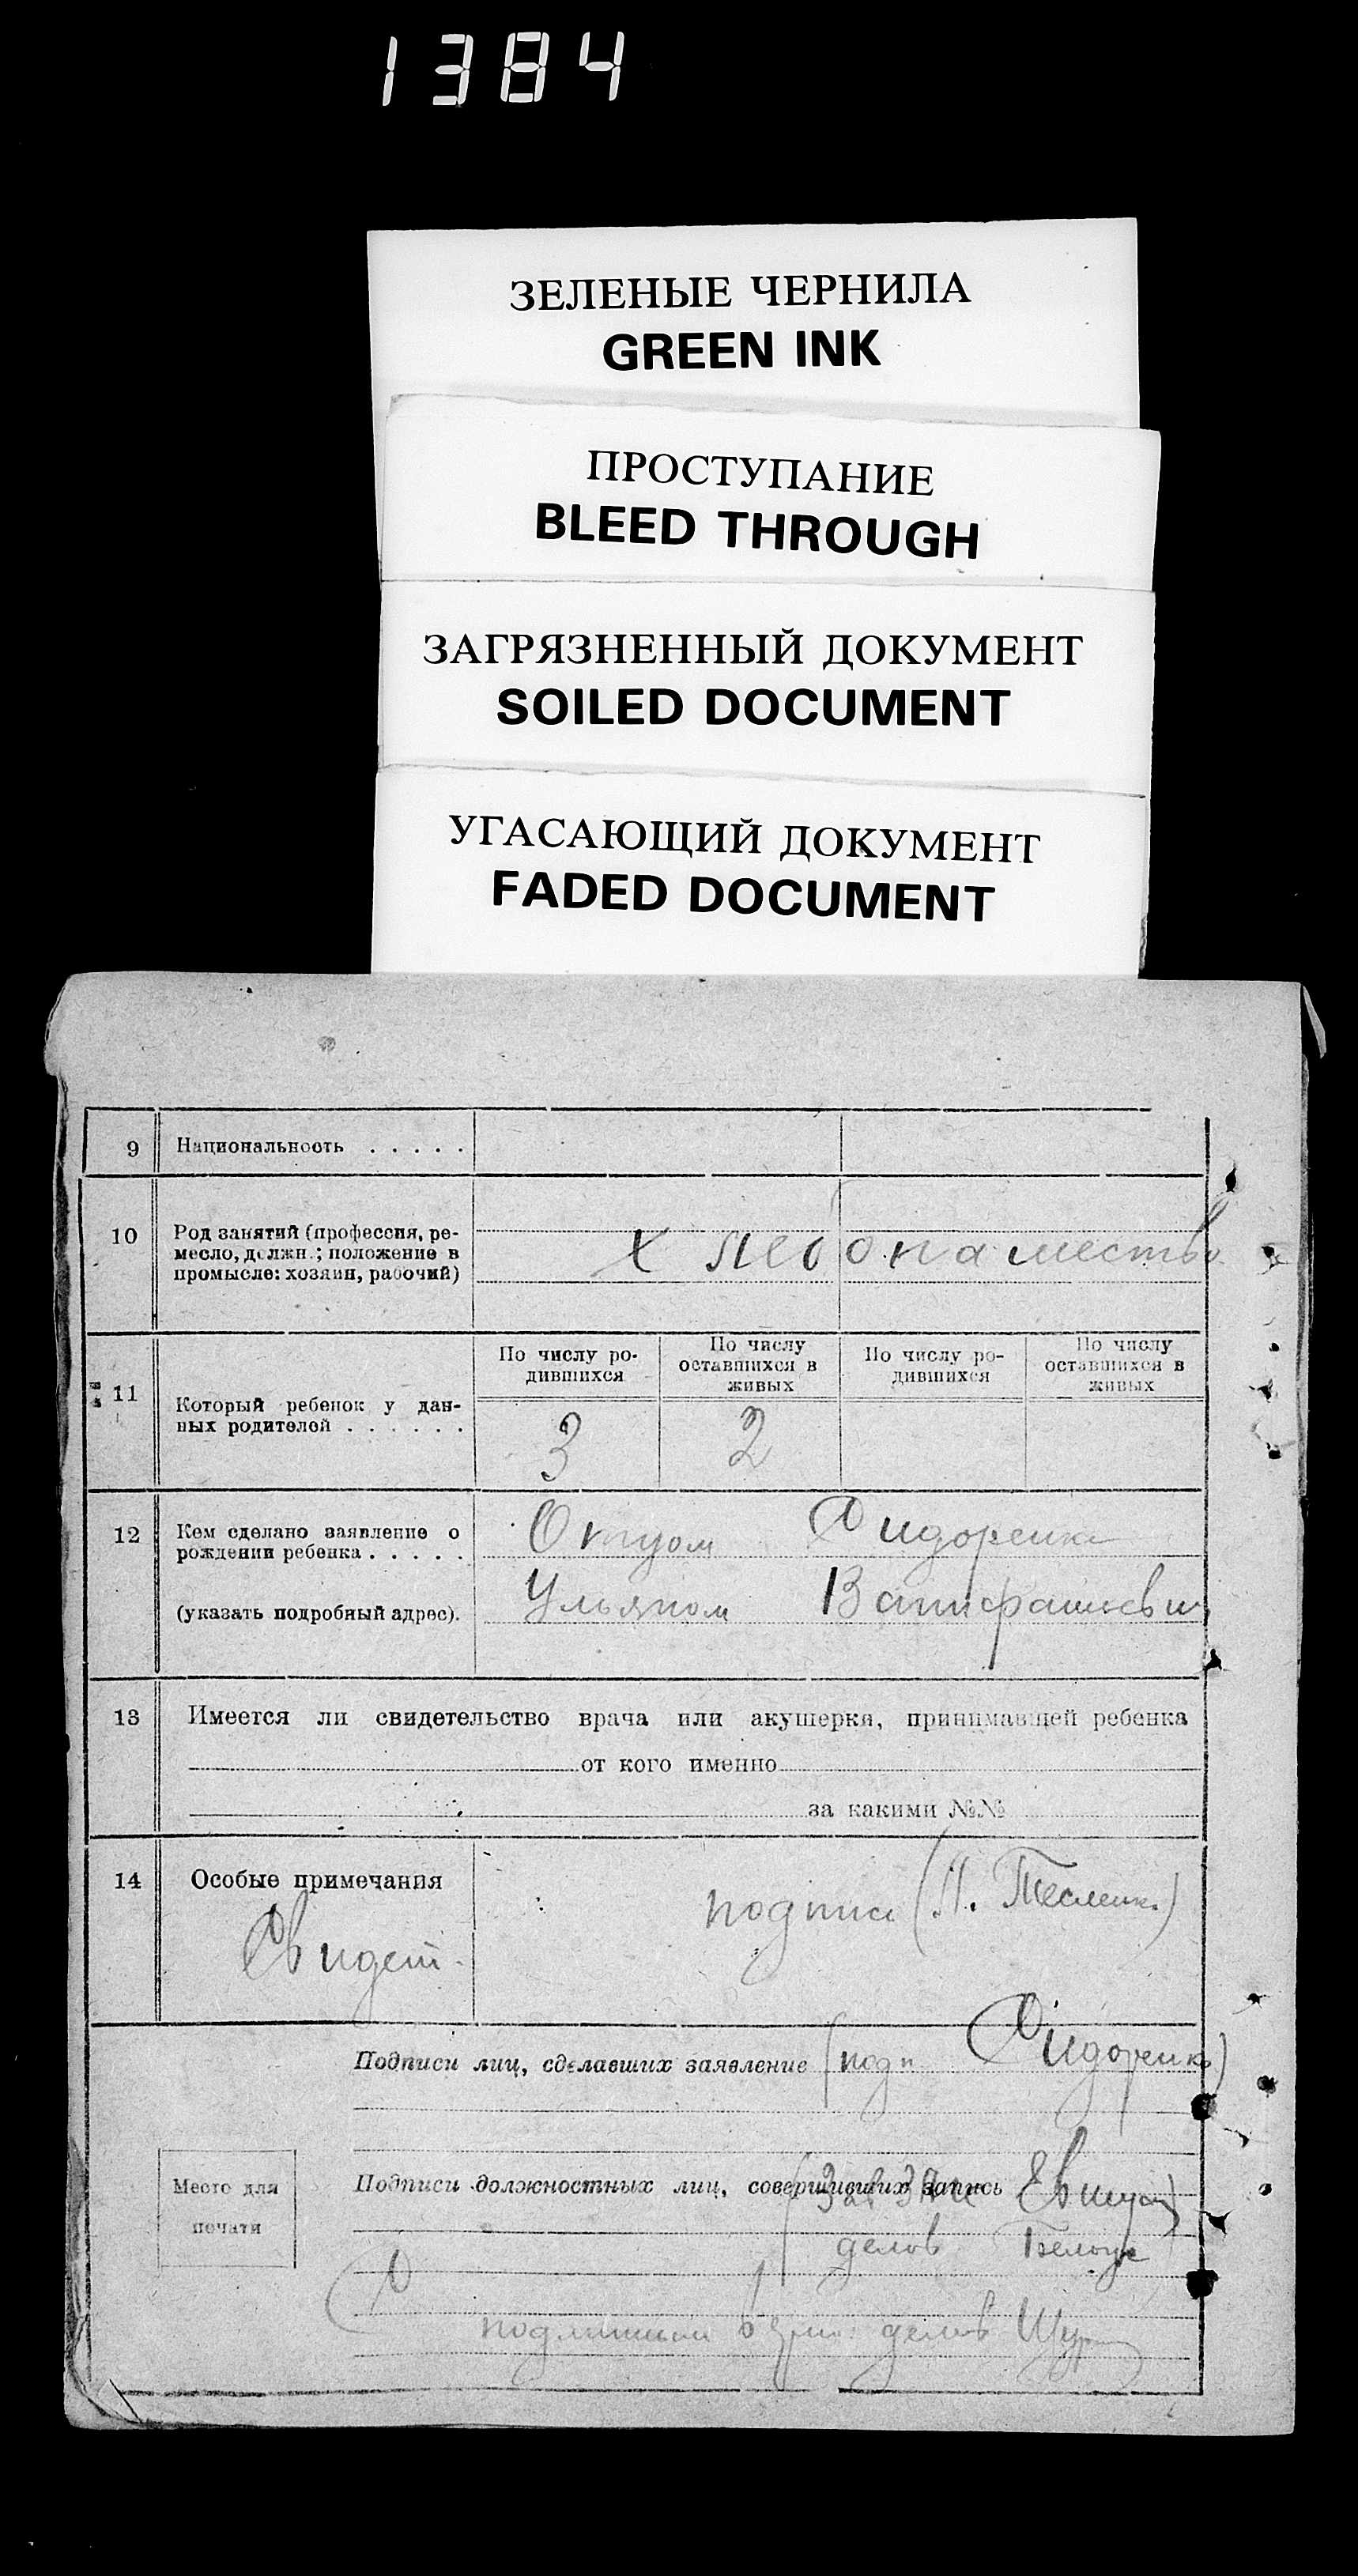 1384
ЗЕЛЕНЫЕ ЧЕРНИЛА
GREEN INK
ПРОСТУПАНИЕ
BLEED THROUGH
ЗАГРЯЗНЕННЫЙ ДОКУМЕНТ
SOILED DOCUMENT
УГАСАЮЩИЙ ДОКУМЕНТ
FADED DOCUMENT
9 Национальность . . . . .
10 Род занятий (профессия, ре-
месло, должн.; положение в
промысле: хозяин, рабочий)
хлебопашество
11 Который ребенок у дан-
ных родителей . . . . . .
По числу ро-
дившихся
По числу
оставшихся в
живых
По числу ро-
дившихся
По числу
оставшихся в
живых
3 2
12 Кем сделано заявление о
рождении ребенка . . . . .
(указать подробный адрес).
Отцом Сидоренко
Ульяном
13 Имеется ли свидетельство врача или акушерки, принимавшей ребенка
от кого именно
за какими №№
14 Особые примечания
подписи
Свидет.
Подписи лиц, сделавших заявление (подп Сидоренко)
Подписи должностных лиц, совершивших запись
делов
Место для
печати
С подлинным